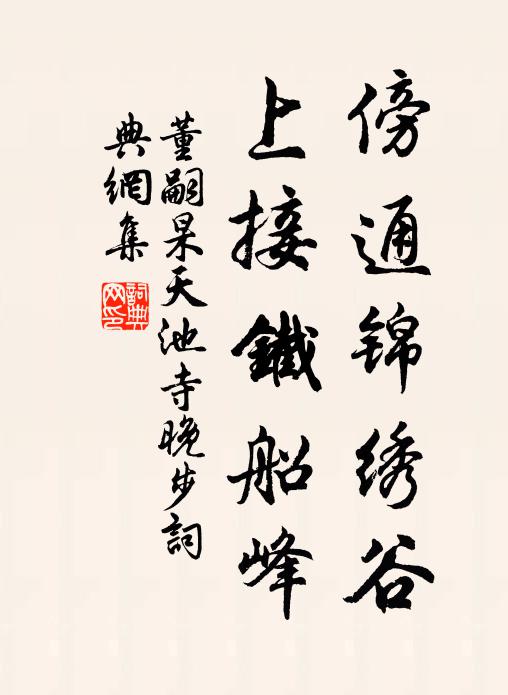 傍通锦绣谷
上接鐵船峰
董嗣杲天池寺晚步詞
典網集
詞典
网印